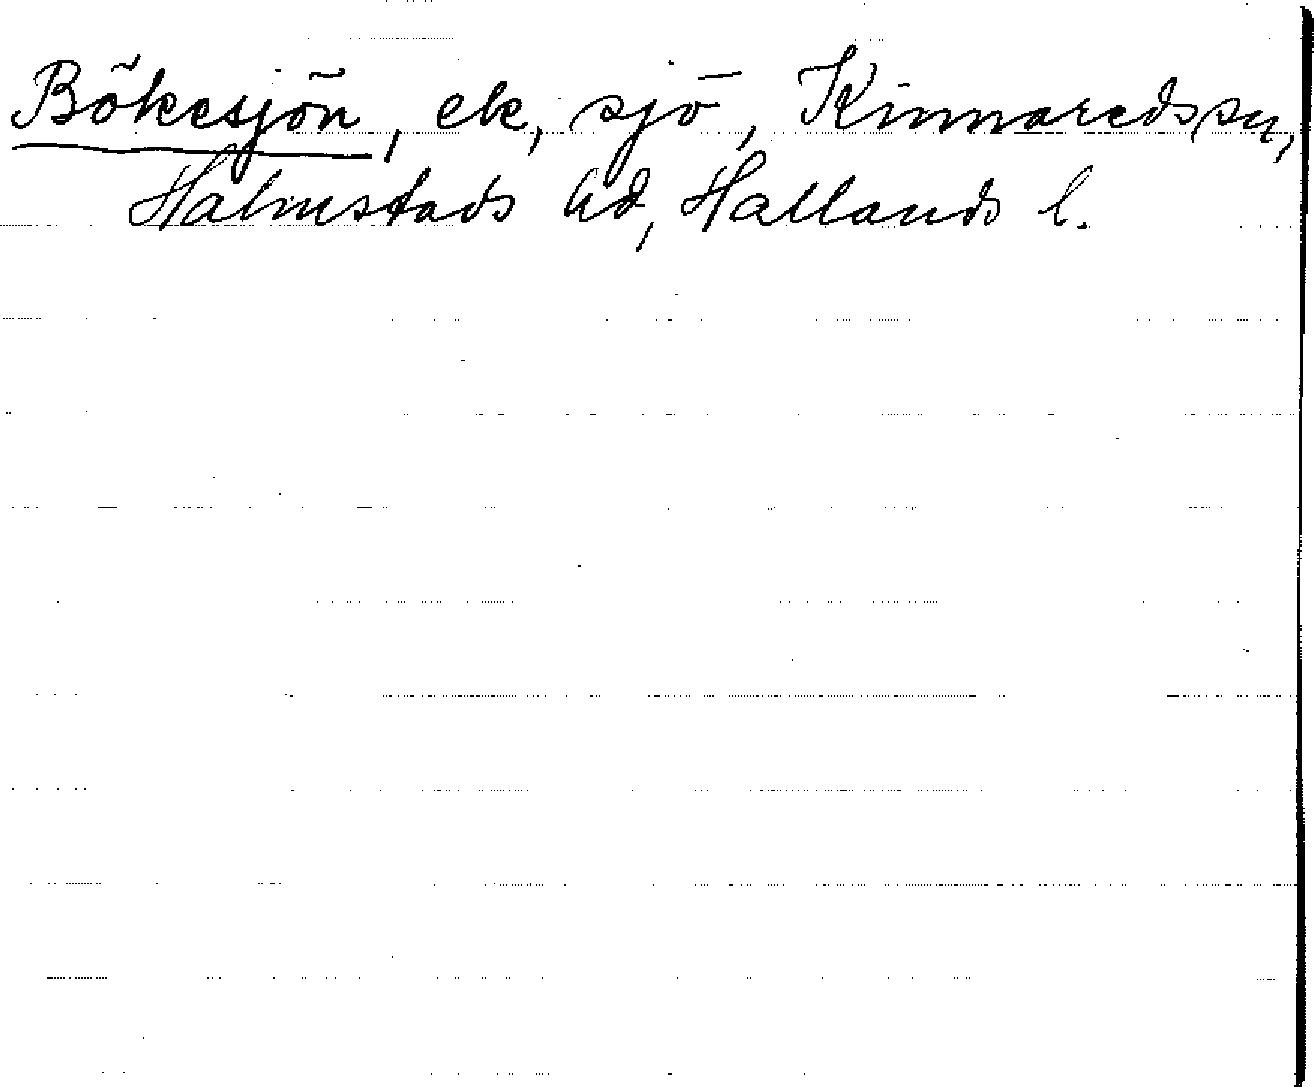 Bökesjön, ek, sjö, Kinnareds sn,
Halmstads hd, Hallands l.